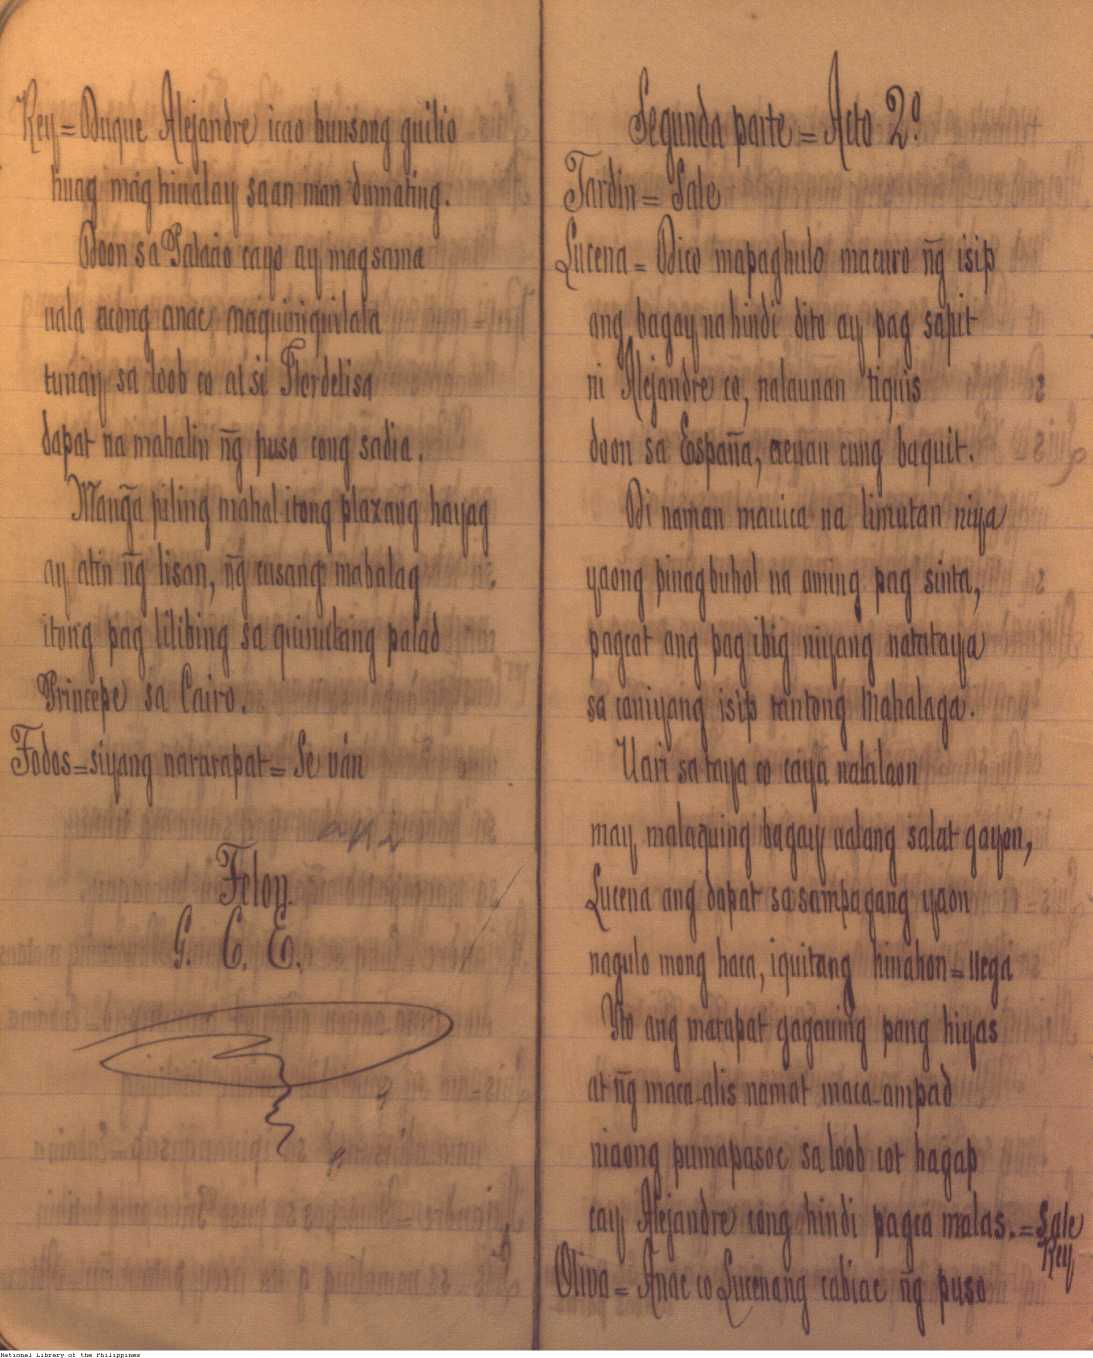 Rey = Duque Alejandre icao bunsong guilio
huag mághiualay saan man dumating.
Doon sa Palacio cayo ay magsama
uala acong anac maquiniquilala
tunay sa loob co at si Flerdelisa
dapat na mahalin ñg puso cong sadia.
Manga piling mahal itong plazang hayag
ay atin ñg lisan, ñg cusang mabalag
itong pag lilibing sa quinulang palad
Principe sa Cairo.
Todos = siyang nararapat = Se ván
Feloy.
G. C. E.
Segunda parte = Acto 2º
Jardin = Sale
Lucena = Dico mapaghulo macuro ñg isip
ang bagay na hindi dito ay pag sapit
ni Alejandre co, nalaunan tiquis
doon sa España, aeyuan cung baquit.
Di naman mauica na limutan niya
yaong pinagbuhol na aming pag sinta,
pagcat ang pag ibig niyang natataya
sa caniyang isip tantong Mahalaga.
Uari sa taya co caya natalaon
may malaquing bagay ualang salat gayon,
Lucena ang dapat sa sampagang yaon
nagulo mong haca, iquitang hinahon = llega
Yto ang marapat gagauing pang hiyas
at ñg maca-alis namat maca-ampad
niaong pumapasoc sa loob cot hagap
cay Alejandre cong hindi pagca malas. = Sale
Rey
Oliva = Anac co Lucenang cabiac ñg puso
National Library of the Philippines